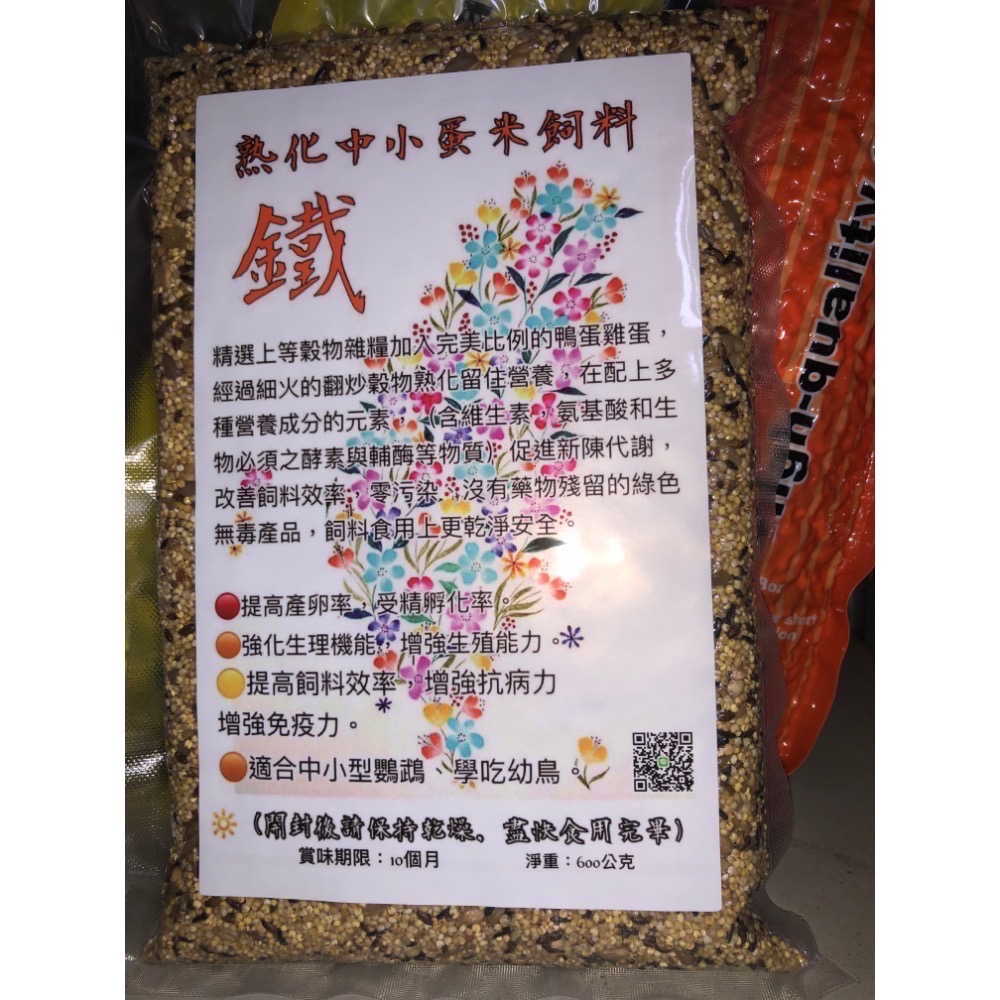 熟化中小蛋米飼料
鐵
精選上等穀物雜糧加入完美比例的鴨蛋雞蛋，
經過細火的翻炒穀物熟化留住營養，在配上多
種營養成分的元素，（含維生素，氨基酸和生
物必須之酵素與輔酶等物質）促進新陳代謝，
改善飼料效率，零污染，沒有藥物殘留的綠色
無毒產品，飼料食用上更乾淨安全。
提高產卵率，受精孵化率。
強化生理機能，增強生殖能力。
提高飼料效率，增強抗病力
增強免疫力。
適合中小型鸚鵡、學吃幼鳥。
（開封後請保持乾燥。盡快食用完畢）
賞味期限：10個月 淨重：600公克
high-quality